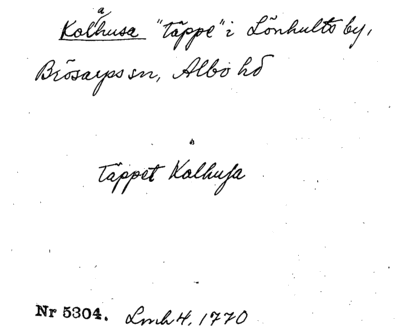 Kolhusa "täppe" i Lönhults by,
Brösarps sn, Albo hd
Täppet Kolhusa
Nr 5304. Lmh 4, 1770